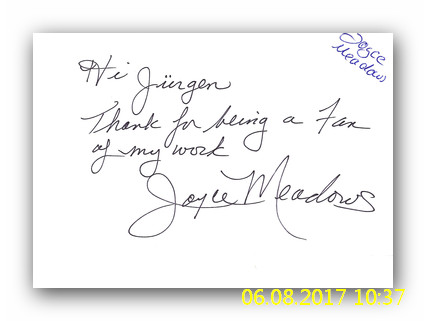 Joyce
Meadows
Hi Jürgen
Thank for being a Fan
of my work
Joyce Meadows
06.08.2017 10:37